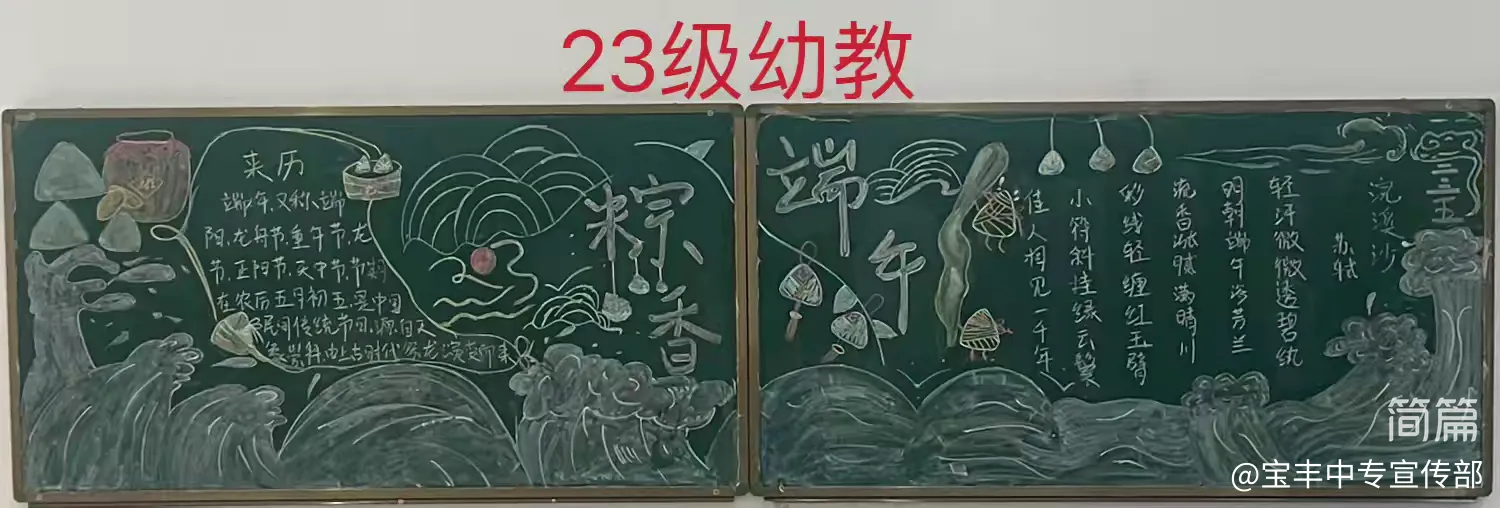 23级幼教
来历
端午,又称端
阳、龙舟节、重午节、龙
节、正阳节、天中节、节
在农历五月初五,是中国
民间传统节日,源自天
象崇拜,由上古时代祭龙演变而来
粽香
端午
浣溪沙
苏轼
轻汗微微透碧纨
明朝端午浴芳兰
流香涨腻满晴川
彩线轻缠红玉臂
小符斜挂绿云鬟
佳人相见一千年
简篇
@宝丰中专宣传部